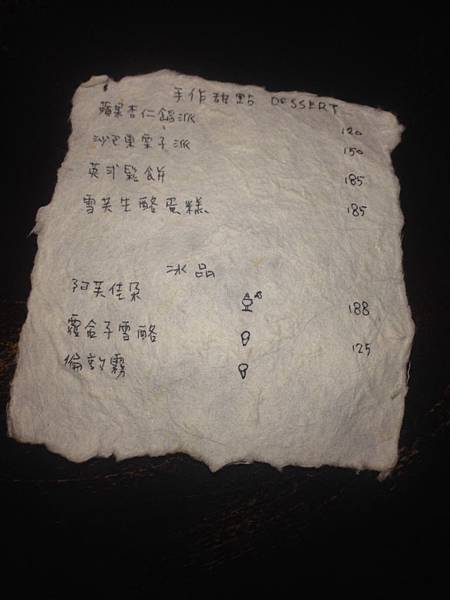 手作甜點 DESSERT
蘋果杏仁餡派 120
沙巴東栗子派 150
英式鬆餅 185
雪芙生酪蛋糕 185
冰品
阿芙佳朵 188
覆盆子雪酪 125
倫敦霧